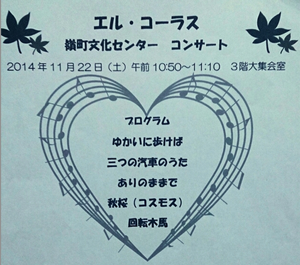 エル・コーラス
嶺町文化センター コンサート
2014年11月22日(土)午前10:50~11:10 3階大集会室
プログラム
ゆかいに歩けば
三つの汽車のうた
ありのままで
秋桜(コスモス)
回転木馬